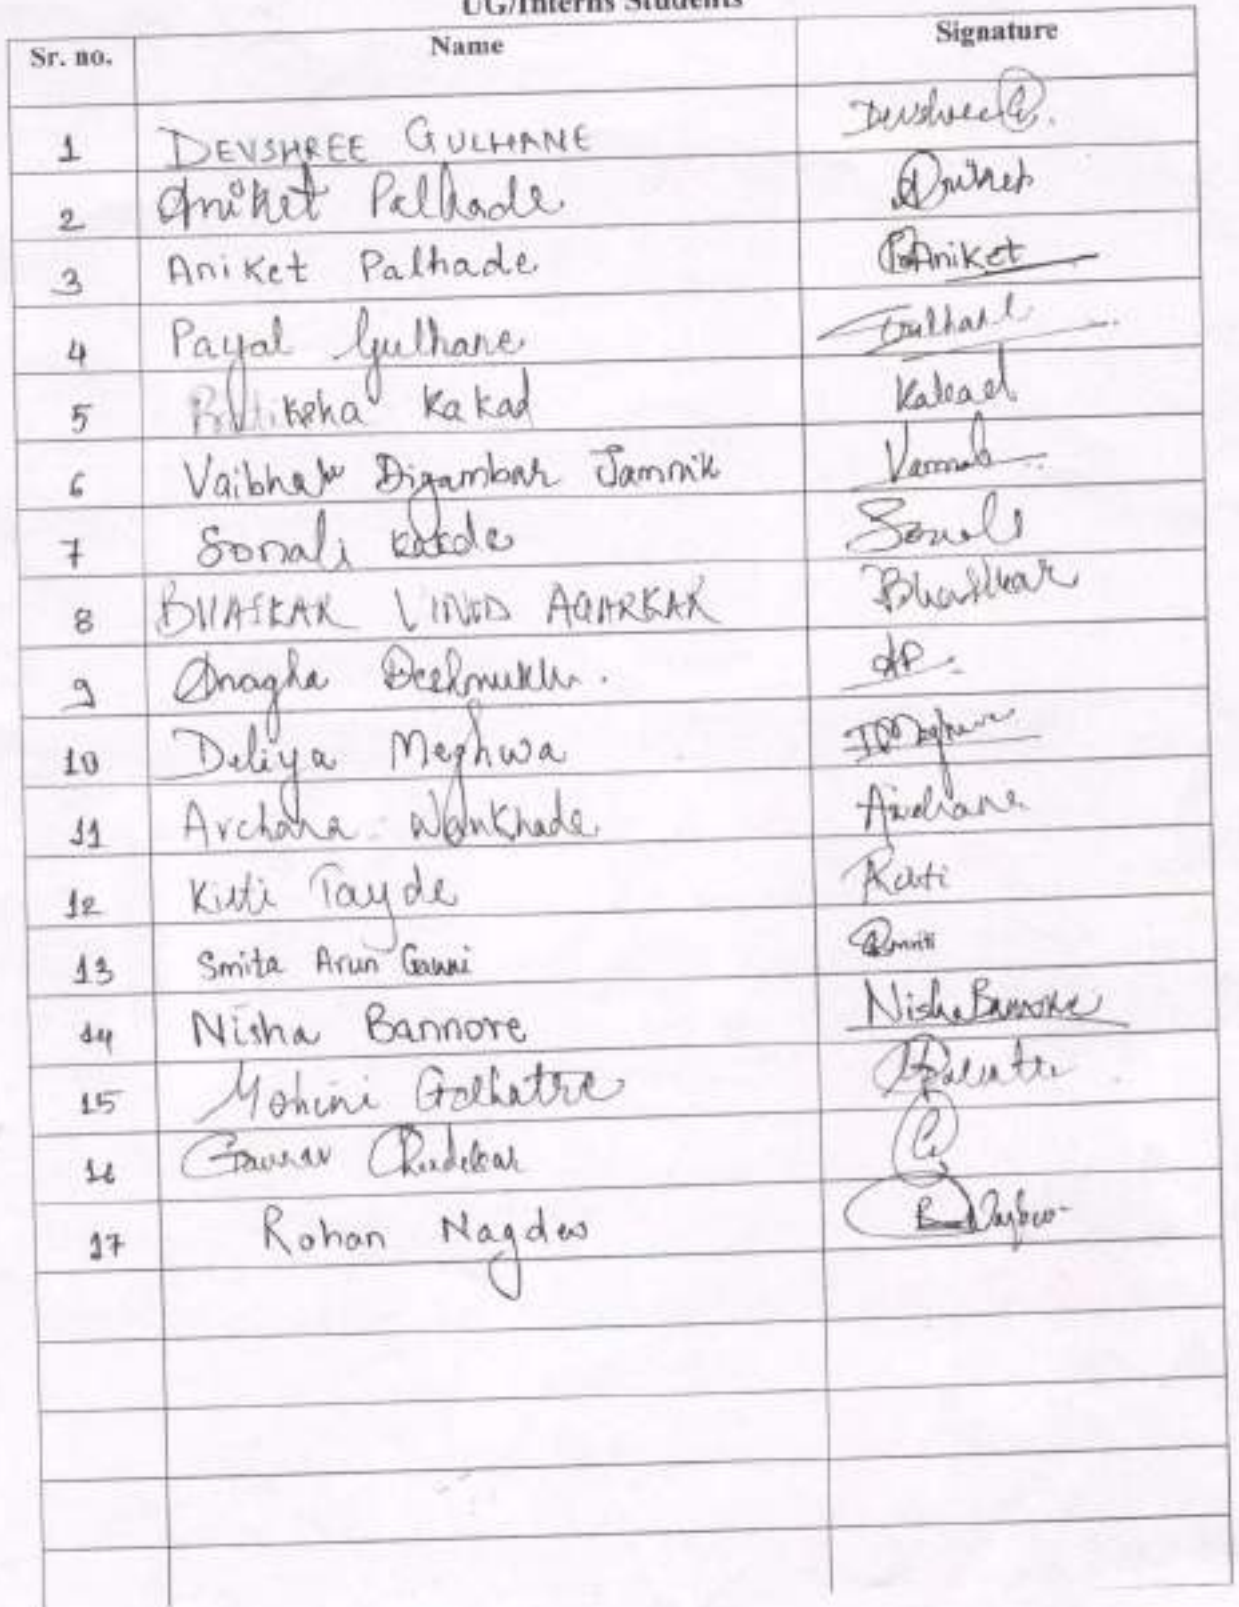 UG/Interns Students
Sr. no. Name Signature
1 DEVSHREE GULHANE Devshree G.
2 Aniket Palhade Aniket
3 Aniket Palhade Aniket
4 Payal Gulhane Gulhane
5 Kakad Kakad
6 Vaibhav Digambar Jamnik
7 Sonali Kakde Sonali
8 BHASKAR VINOD AGARKAR Bhaskar
9 Anagha Deshmukh.
10 Deliya Meghwa
11 Archana Wankhade Archana
12 Kirti Tayde Kirti
13 Smita Arun
14 Nisha Bannore Nisha Bannore
15 Mohini Golhatre
16 Gaurav
17 Rohan Nagdev